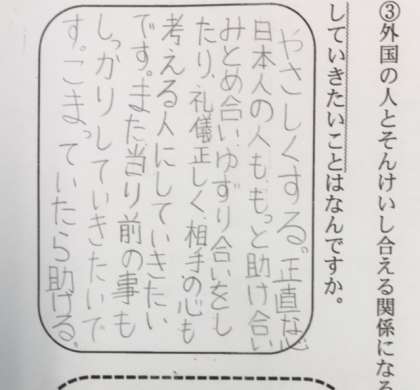 ③外国の人とそんけいし合える関係になる
していきたいことはなんですか。
やさしくする。正直な心
日本人の人も、もっと助け合い
みとめ合いゆずり合いをし
たり、礼儀正しく、相手の心も
考える人にしていきたい
です。また当り前の事も
しっかりしていきたいで
す。こまっていたら助ける。